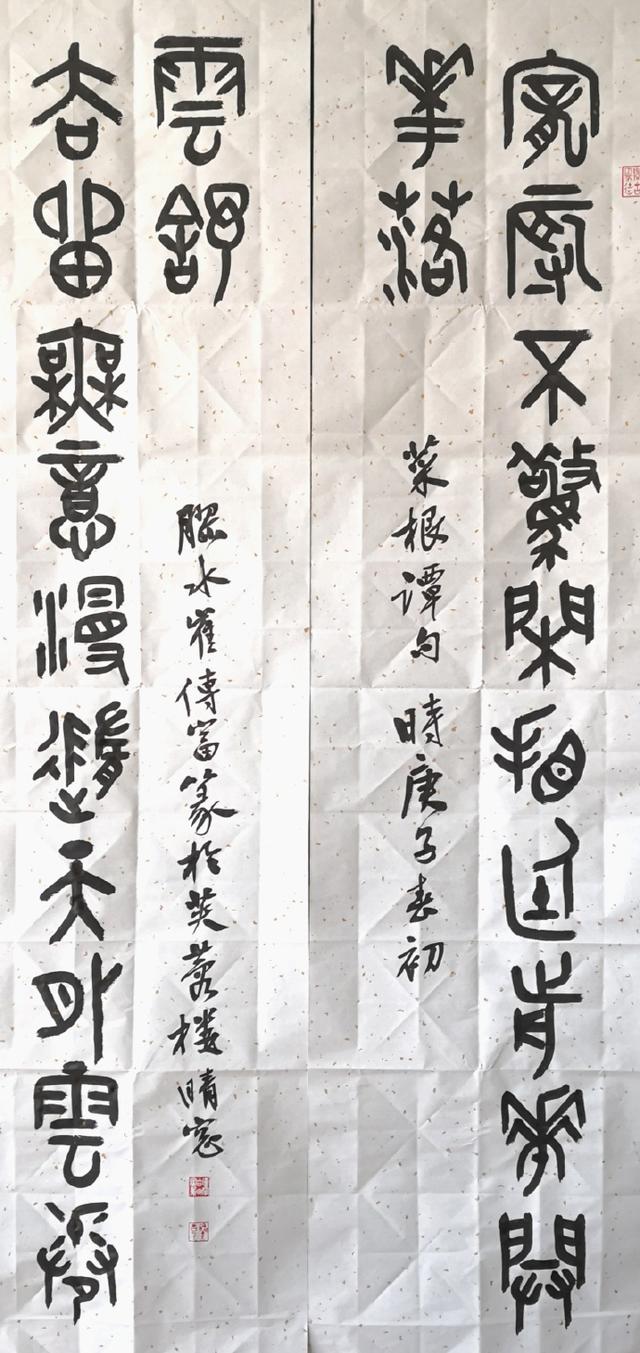 寵辱不驚閑看庭前華開
華落
菜根譚句 時庚子春初
去留無意漫隨天外雲卷
雲舒
膠水崔傳富篆於芙蓉樓晴窗